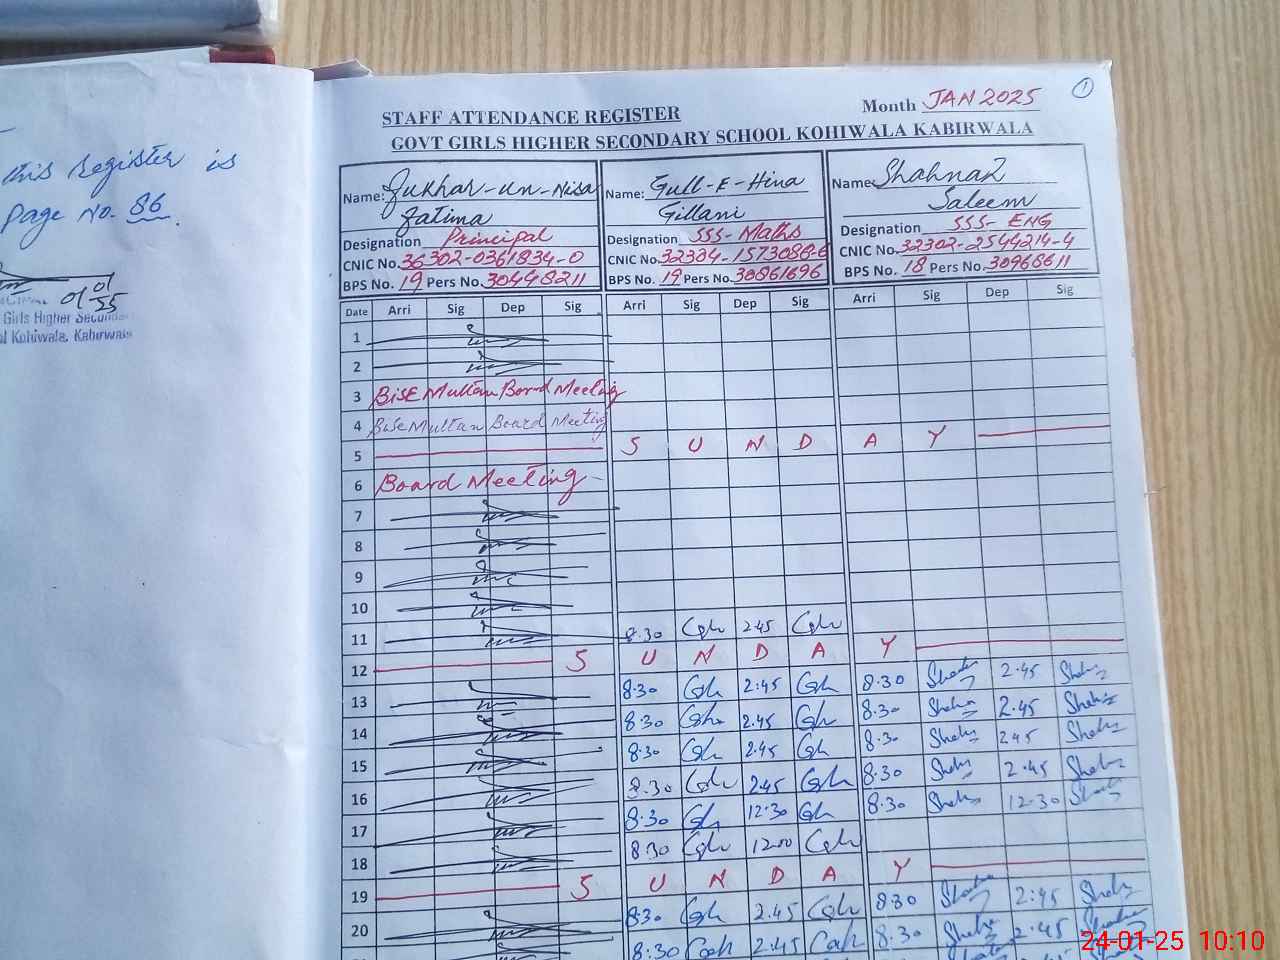 this Register is
page No. 86.
01/01/25
Girls Higher Secondary
Kohiwala, Kabirwala
1
STAFF ATTENDANCE REGISTER
Month JAN 2025
GOVT GIRLS HIGHER SECONDARY SCHOOL KOHIWALA KABIRWALA
Name: Fukhar-un-Nisa
Fatima
Designation Principal
CNIC No. 36302-0361834-0
BPS No. 19 Pers No. 30448211
Name: Gull-E-Hina
Gillani
Designation SSS-Maths
CNIC No. 32304-1573088-6
BPS No. 19 Pers No. 30861696
Name: Shahnaz
Saleem
Designation SSS-ENG
CNIC No. 32302-2544214-4
BPS No. 18 Pers No. 30968611
Date Arri Sig Dep Sig Arri Sig Dep Sig Arri Sig Dep Sig
1
2
3 BISE Multan Board Meeting
4 BISE Multan Board Meeting
5 S U N D A Y
6 Board Meeting
7
8
9
10
11 8.30 2.45
12 S U N D A Y
13 8.30 2:45 8.30 2.45
14 8.30 2.45 8.30 2.45
15 8.30 2.45 8.30 2.45
16 8.30 2.45 8.30 2.45
17 8.30 12.30 8.30 12.30
18 8.30 12.00
19 S U N D A Y
20 8.30 2.45 8.30 2:45
8.30 2.45 8.30 2.45
24-01-25 10:10